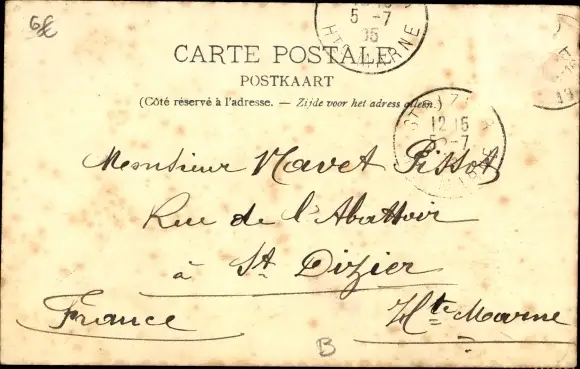 6€
5 -7
05
HTE MARNE
CARTE POSTALE
POSTKAART
(Côté réservé à l'adresse. — Zijde voor het adress alleen.)
12 15
5 -7
Monsieur Navet Pissot
Rue de l'Abattoir
à St Dizier
France Hte Marne
B